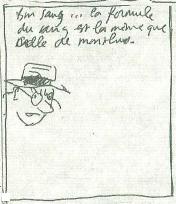 bon sang ... la formule
du sang est la même que
celle de